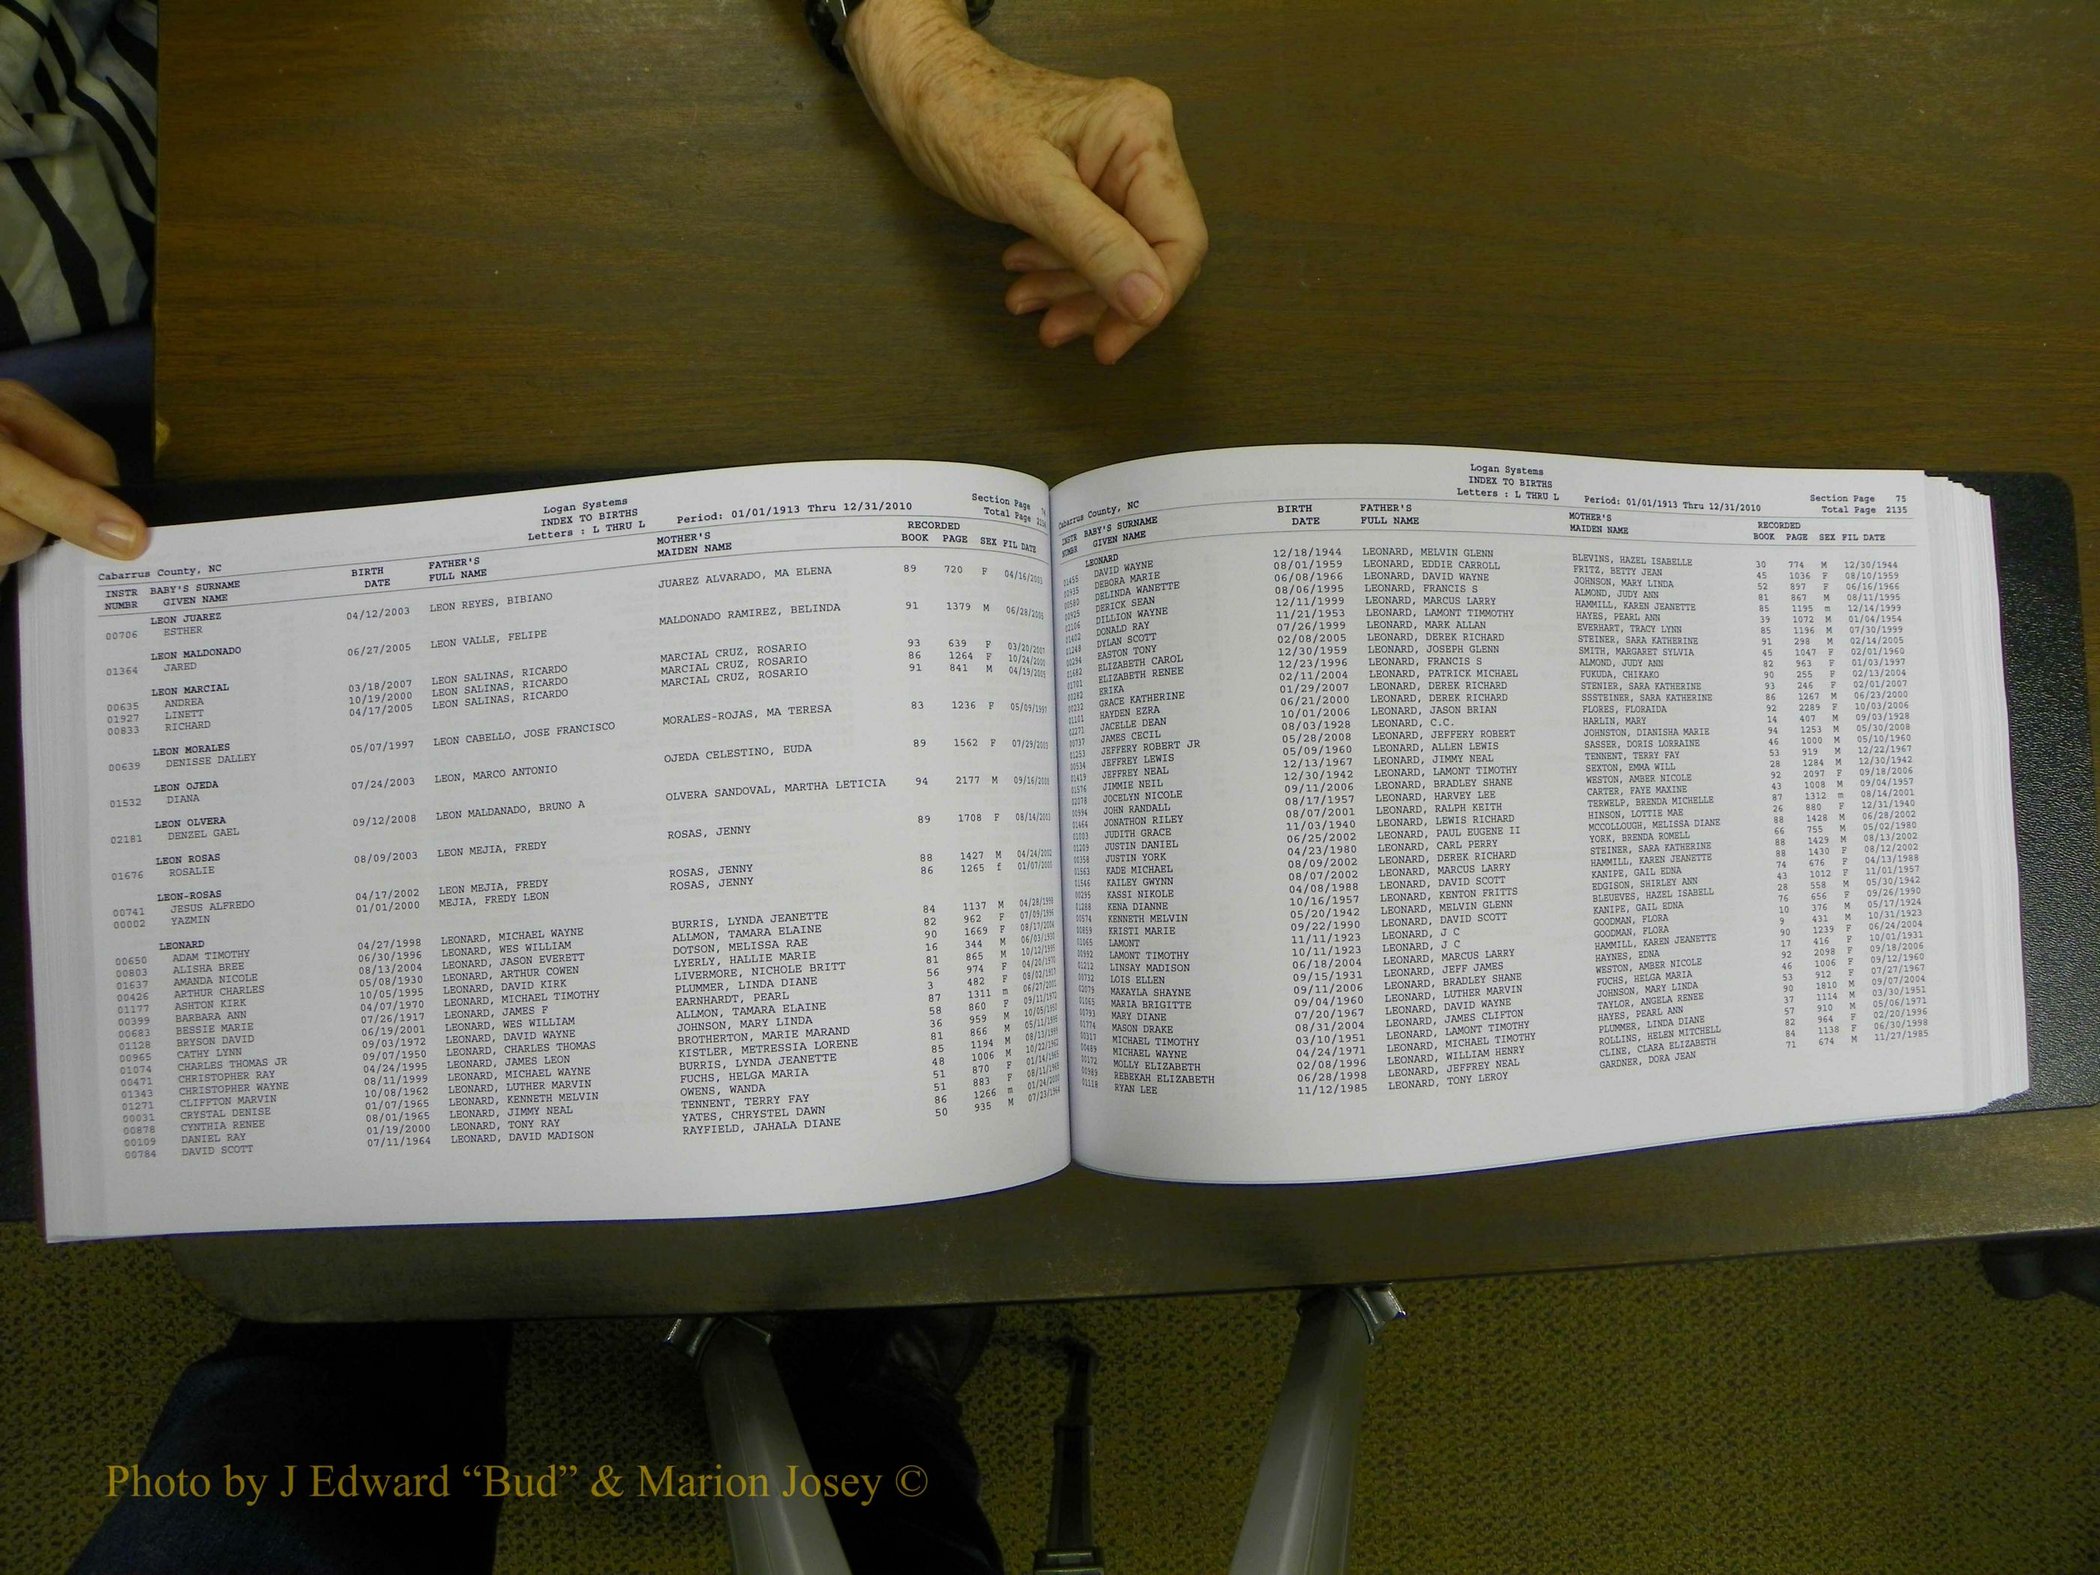 Logan Systems
INDEX TO BIRTHS
Letters : L THRU L Period: 01/01/1913 Thru 12/31/2010
Section Page 74
Total Page 2134
Cabarrus County, NC
INSTR BABY'S SURNAME BIRTH FATHER'S MOTHER'S RECORDED
NUMBR GIVEN NAME DATE FULL NAME MAIDEN NAME BOOK PAGE SEX FIL DATE
LEON JUAREZ
00706 ESTHER 04/12/2003 LEON REYES, BIBIANO JUAREZ ALVARADO, MA ELENA 89 720 F 04/16/2003
LEON MALDONADO
01364 JARED 06/27/2005 LEON VALLE, FELIPE MALDONADO RAMIREZ, BELINDA 91 1379 M 06/28/2005
LEON MARCIAL
00635 ANDREA 03/18/2007 LEON SALINAS, RICARDO MARCIAL CRUZ, ROSARIO 93 639 F 03/20/2007
01927 LINETT 10/19/2000 LEON SALINAS, RICARDO MARCIAL CRUZ, ROSARIO 86 1264 F 10/24/2000
00833 RICHARD 04/17/2005 LEON SALINAS, RICARDO MARCIAL CRUZ, ROSARIO 91 841 M 04/19/2005
LEON MORALES
00639 DENISSE DALLEY 05/07/1997 LEON CABELLO, JOSE FRANCISCO MORALES-ROJAS, MA TERESA 83 1236 F 05/09/1997
LEON OJEDA
01532 DIANA 07/24/2003 LEON, MARCO ANTONIO OJEDA CELESTINO, EUDA 89 1562 F 07/29/2003
LEON OLVERA
02181 DENZEL GAEL 09/12/2008 LEON MALDANADO, BRUNO A OLVERA SANDOVAL, MARTHA LETICIA 94 2177 M 09/16/2008
LEON ROSAS
01676 ROSALIE 08/09/2003 LEON MEJIA, FREDY ROSAS, JENNY 89 1708 F 08/14/2003
LEON-ROSAS
00741 JESUS ALFREDO 04/17/2002 LEON MEJIA, FREDY ROSAS, JENNY 88 1427 M 04/24/2002
00002 YAZMIN 01/01/2000 MEJIA, FREDY LEON ROSAS, JENNY 86 1265 f 01/07/2000
LEONARD
00650 ADAM TIMOTHY 04/27/1998 LEONARD, MICHAEL WAYNE BURRIS, LYNDA JEANETTE 84 1137 M 04/28/1998
00803 ALISHA BREE 06/30/1996 LEONARD, WES WILLIAM ALLMON, TAMARA ELAINE 82 962 F 07/09/1996
01637 AMANDA NICOLE 08/13/2004 LEONARD, JASON EVERETT DOTSON, MELISSA RAE 90 1669 F 08/17/2004
00426 ARTHUR CHARLES 05/08/1930 LEONARD, ARTHUR COWEN LYERLY, HALLIE MARIE 16 344 M 06/03/1930
01177 ASHTON KIRK 10/05/1995 LEONARD, DAVID KIRK LIVERMORE, NICHOLE BRITT 81 865 M 10/12/1995
00399 BARBARA ANN 04/07/1970 LEONARD, MICHAEL TIMOTHY PLUMMER, LINDA DIANE 56 974 F 04/20/1970
00683 BESSIE MARIE 07/26/1917 LEONARD, JAMES F EARNHARDT, PEARL 3 482 F 08/02/1917
01128 BRYSON DAVID 06/19/2001 LEONARD, WES WILLIAM ALLMON, TAMARA ELAINE 87 1311 m 06/27/2001
00965 CATHY LYNN 09/03/1972 LEONARD, DAVID WAYNE JOHNSON, MARY LINDA 58 860 F 09/11/1972
01074 CHARLES THOMAS JR 09/07/1950 LEONARD, CHARLES THOMAS BROTHERTON, MARIE MARAND 36 959 M 10/05/1950
00471 CHRISTOPHER RAY 04/24/1995 LEONARD, JAMES LEON KISTLER, METRESSIA LORENE 81 866 M 05/11/1995
01343 CHRISTOPHER WAYNE 08/11/1999 LEONARD, MICHAEL WAYNE BURRIS, LYNDA JEANETTE 85 1194 M 08/13/1999
01271 CLIFFTON MARVIN 10/08/1962 LEONARD, LUTHER MARVIN FUCHS, HELGA MARIA 48 1006 M 10/22/1962
00031 CRYSTAL DENISE 01/07/1965 LEONARD, KENNETH MELVIN OWENS, WANDA 51 870 F 01/14/1965
00878 CYNTHIA RENEE 08/01/1965 LEONARD, JIMMY NEAL TENNENT, TERRY FAY 51 883 F 08/11/1965
00109 DANIEL RAY 01/19/2000 LEONARD, TONY RAY YATES, CHRYSTEL DAWN 86 1266 m 01/24/2000
00784 DAVID SCOTT 07/11/1964 LEONARD, DAVID MADISON RAYFIELD, JAHALA DIANE 50 935 M 07/23/1964
Logan Systems
INDEX TO BIRTHS
Letters : L THRU L Period: 01/01/1913 Thru 12/31/2010
Section Page 75
Total Page 2135
Cabarrus County, NC
INSTR BABY'S SURNAME BIRTH FATHER'S MOTHER'S RECORDED
NUMBR GIVEN NAME DATE FULL NAME MAIDEN NAME BOOK PAGE SEX FIL DATE
LEONARD
01455 DAVID WAYNE 12/18/1944 LEONARD, MELVIN GLENN BLEVINS, HAZEL ISABELLE 30 774 M 12/30/1944
00935 DEBORA MARIE 08/01/1959 LEONARD, EDDIE CARROLL FRITZ, BETTY JEAN 45 1036 F 08/10/1959
00580 DELINDA WANETTE 06/08/1966 LEONARD, DAVID WAYNE JOHNSON, MARY LINDA 52 897 F 06/16/1966
00925 DERICK SEAN 08/06/1995 LEONARD, FRANCIS S ALMOND, JUDY ANN 81 867 M 08/11/1995
02106 DILLION WAYNE 12/11/1999 LEONARD, MARCUS LARRY HAMMILL, KAREN JEANETTE 85 1195 m 12/14/1999
01402 DONALD RAY 11/21/1953 LEONARD, LAMONT TIMMOTHY HAYES, PEARL ANN 39 1072 M 01/04/1954
01248 DYLAN SCOTT 07/26/1999 LEONARD, MARK ALLAN EVERHART, TRACY LYNN 85 1196 M 07/30/1999
00294 EASTON TONY 02/08/2005 LEONARD, DEREK RICHARD STEINER, SARA KATHERINE 91 298 M 02/14/2005
01682 ELIZABETH CAROL 12/30/1959 LEONARD, JOSEPH GLENN SMITH, MARGARET SYLVIA 45 1047 F 02/01/1960
01701 ELIZABETH RENEE 12/23/1996 LEONARD, FRANCIS S ALMOND, JUDY ANN 82 963 F 01/03/1997
00282 ERIKA 02/11/2004 LEONARD, PATRICK MICHAEL FUKUDA, CHIKAKO 90 255 F 02/13/2004
00232 GRACE KATHERINE 01/29/2007 LEONARD, DEREK RICHARD STENIER, SARA KATHERINE 93 246 F 02/01/2007
01101 HAYDEN EZRA 06/21/2000 LEONARD, DEREK RICHARD SSSTEINER, SARA KATHERINE 86 1267 M 06/23/2000
02273 JACELLE DEAN 10/01/2006 LEONARD, JASON BRIAN FLORES, FLORAIDA 92 2289 F 10/03/2006
00737 JAMES CECIL 08/03/1928 LEONARD, C.C. HARLIN, MARY 14 407 M 09/03/1928
01253 JEFFERY ROBERT JR 05/28/2008 LEONARD, JEFFERY ROBERT JOHNSTON, DIANISHA MARIE 94 1253 M 05/30/2008
00534 JEFFREY LEWIS 05/09/1960 LEONARD, ALLEN LEWIS SASSER, DORIS LORRAINE 46 1000 M 05/10/1960
01419 JEFFREY NEAL 12/13/1967 LEONARD, JIMMY NEAL TENNENT, TERRY FAY 53 919 M 12/22/1967
01576 JIMMIE NEIL 12/30/1942 LEONARD, LAMONT TIMOTHY SEXTON, EMMA WILL 28 1284 M 12/30/1942
02078 JOCELYN NICOLE 09/11/2006 LEONARD, BRADLEY SHANE WESTON, AMBER NICOLE 92 2097 F 09/18/2006
00994 JOHN RANDALL 08/17/1957 LEONARD, HARVEY LEE CARTER, FAYE MAXINE 43 1008 M 09/04/1957
01464 JONATHON RILEY 08/07/2001 LEONARD, RALPH KEITH TERWELP, BRENDA MICHELLE 87 1312 m 08/14/2001
01003 JUDITH GRACE 11/03/1940 LEONARD, LEWIS RICHARD HINSON, LOTTIE MAE 26 880 F 12/31/1940
01209 JUSTIN DANIEL 06/25/2002 LEONARD, PAUL EUGENE II MCCOLLOUGH, MELISSA DIANE 88 1428 M 06/28/2002
00358 JUSTIN YORK 04/23/1980 LEONARD, CARL PERRY YORK, BRENDA ROMELL 66 755 M 05/02/1980
01563 KADE MICHAEL 08/09/2002 LEONARD, DEREK RICHARD STEINER, SARA KATHERINE 88 1429 M 08/13/2002
01546 KAILEY GWYNN 08/07/2002 LEONARD, MARCUS LARRY HAMMILL, KAREN JEANETTE 88 1430 F 08/12/2002
00295 KASSI NIKOLE 04/08/1988 LEONARD, DAVID SCOTT KANIPE, GAIL EDNA 74 676 F 04/13/1988
01288 KENA DIANNE 10/16/1957 LEONARD, KENTON FRITTS EDGISON, SHIRLEY ANN 43 1012 F 11/01/1957
00574 KENNETH MELVIN 05/20/1942 LEONARD, MELVIN GLENN BLEUEVES, HAZEL ISABELL 28 558 M 05/30/1942
00859 KRISTI MARIE 09/22/1990 LEONARD, DAVID SCOTT KANIPE, GAIL EDNA 76 656 F 09/26/1990
01065 LAMONT 11/11/1923 LEONARD, J C GOODMAN, FLORA 10 376 M 05/17/1924
00992 LAMONT TIMOTHY 10/11/1923 LEONARD, J C GOODMAN, FLORA 9 431 M 10/31/1923
01212 LINSAY MADISON 06/18/2004 LEONARD, MARCUS LARRY HAMMILL, KAREN JEANETTE 90 1239 F 06/24/2004
00732 LOIS ELLEN 09/15/1931 LEONARD, JEFF JAMES HAYNES, EDNA 17 416 F 10/01/1931
02079 MAKAYLA SHAYNE 09/11/2006 LEONARD, BRADLEY SHANE WESTON, AMBER NICOLE 92 2098 F 09/18/2006
01065 MARIA BRIGITTE 09/04/1960 LEONARD, LUTHER MARVIN FUCHS, HELGA MARIA 46 1006 F 09/12/1960
00793 MARY DIANE 07/20/1967 LEONARD, DAVID WAYNE JOHNSON, MARY LINDA 53 912 F 07/27/1967
01774 MASON DRAKE 08/31/2004 LEONARD, JAMES CLIFTON TAYLOR, ANGELA RENEE 90 1810 M 09/07/2004
00317 MICHAEL TIMOTHY 03/10/1951 LEONARD, LAMONT TIMOTHY HAYES, PEARL ANN 37 1114 M 03/30/1951
00489 MICHAEL WAYNE 04/24/1971 LEONARD, MICHAEL TIMOTHY PLUMMER, LINDA DIANE 57 910 M 05/06/1971
00172 MOLLY ELIZABETH 02/08/1996 LEONARD, WILLIAM HENRY ROLLINS, HELEN MITCHELL 82 964 F 02/20/1996
00989 REBEKAH ELIZABETH 06/28/1998 LEONARD, JEFFREY NEAL CLINE, CLARA ELIZABETH 84 1138 F 06/30/1998
01118 RYAN LEE 11/12/1985 LEONARD, TONY LEROY GARDNER, DORA JEAN 71 674 M 11/27/1985
Photo by J Edward “Bud” & Marion Josey ©